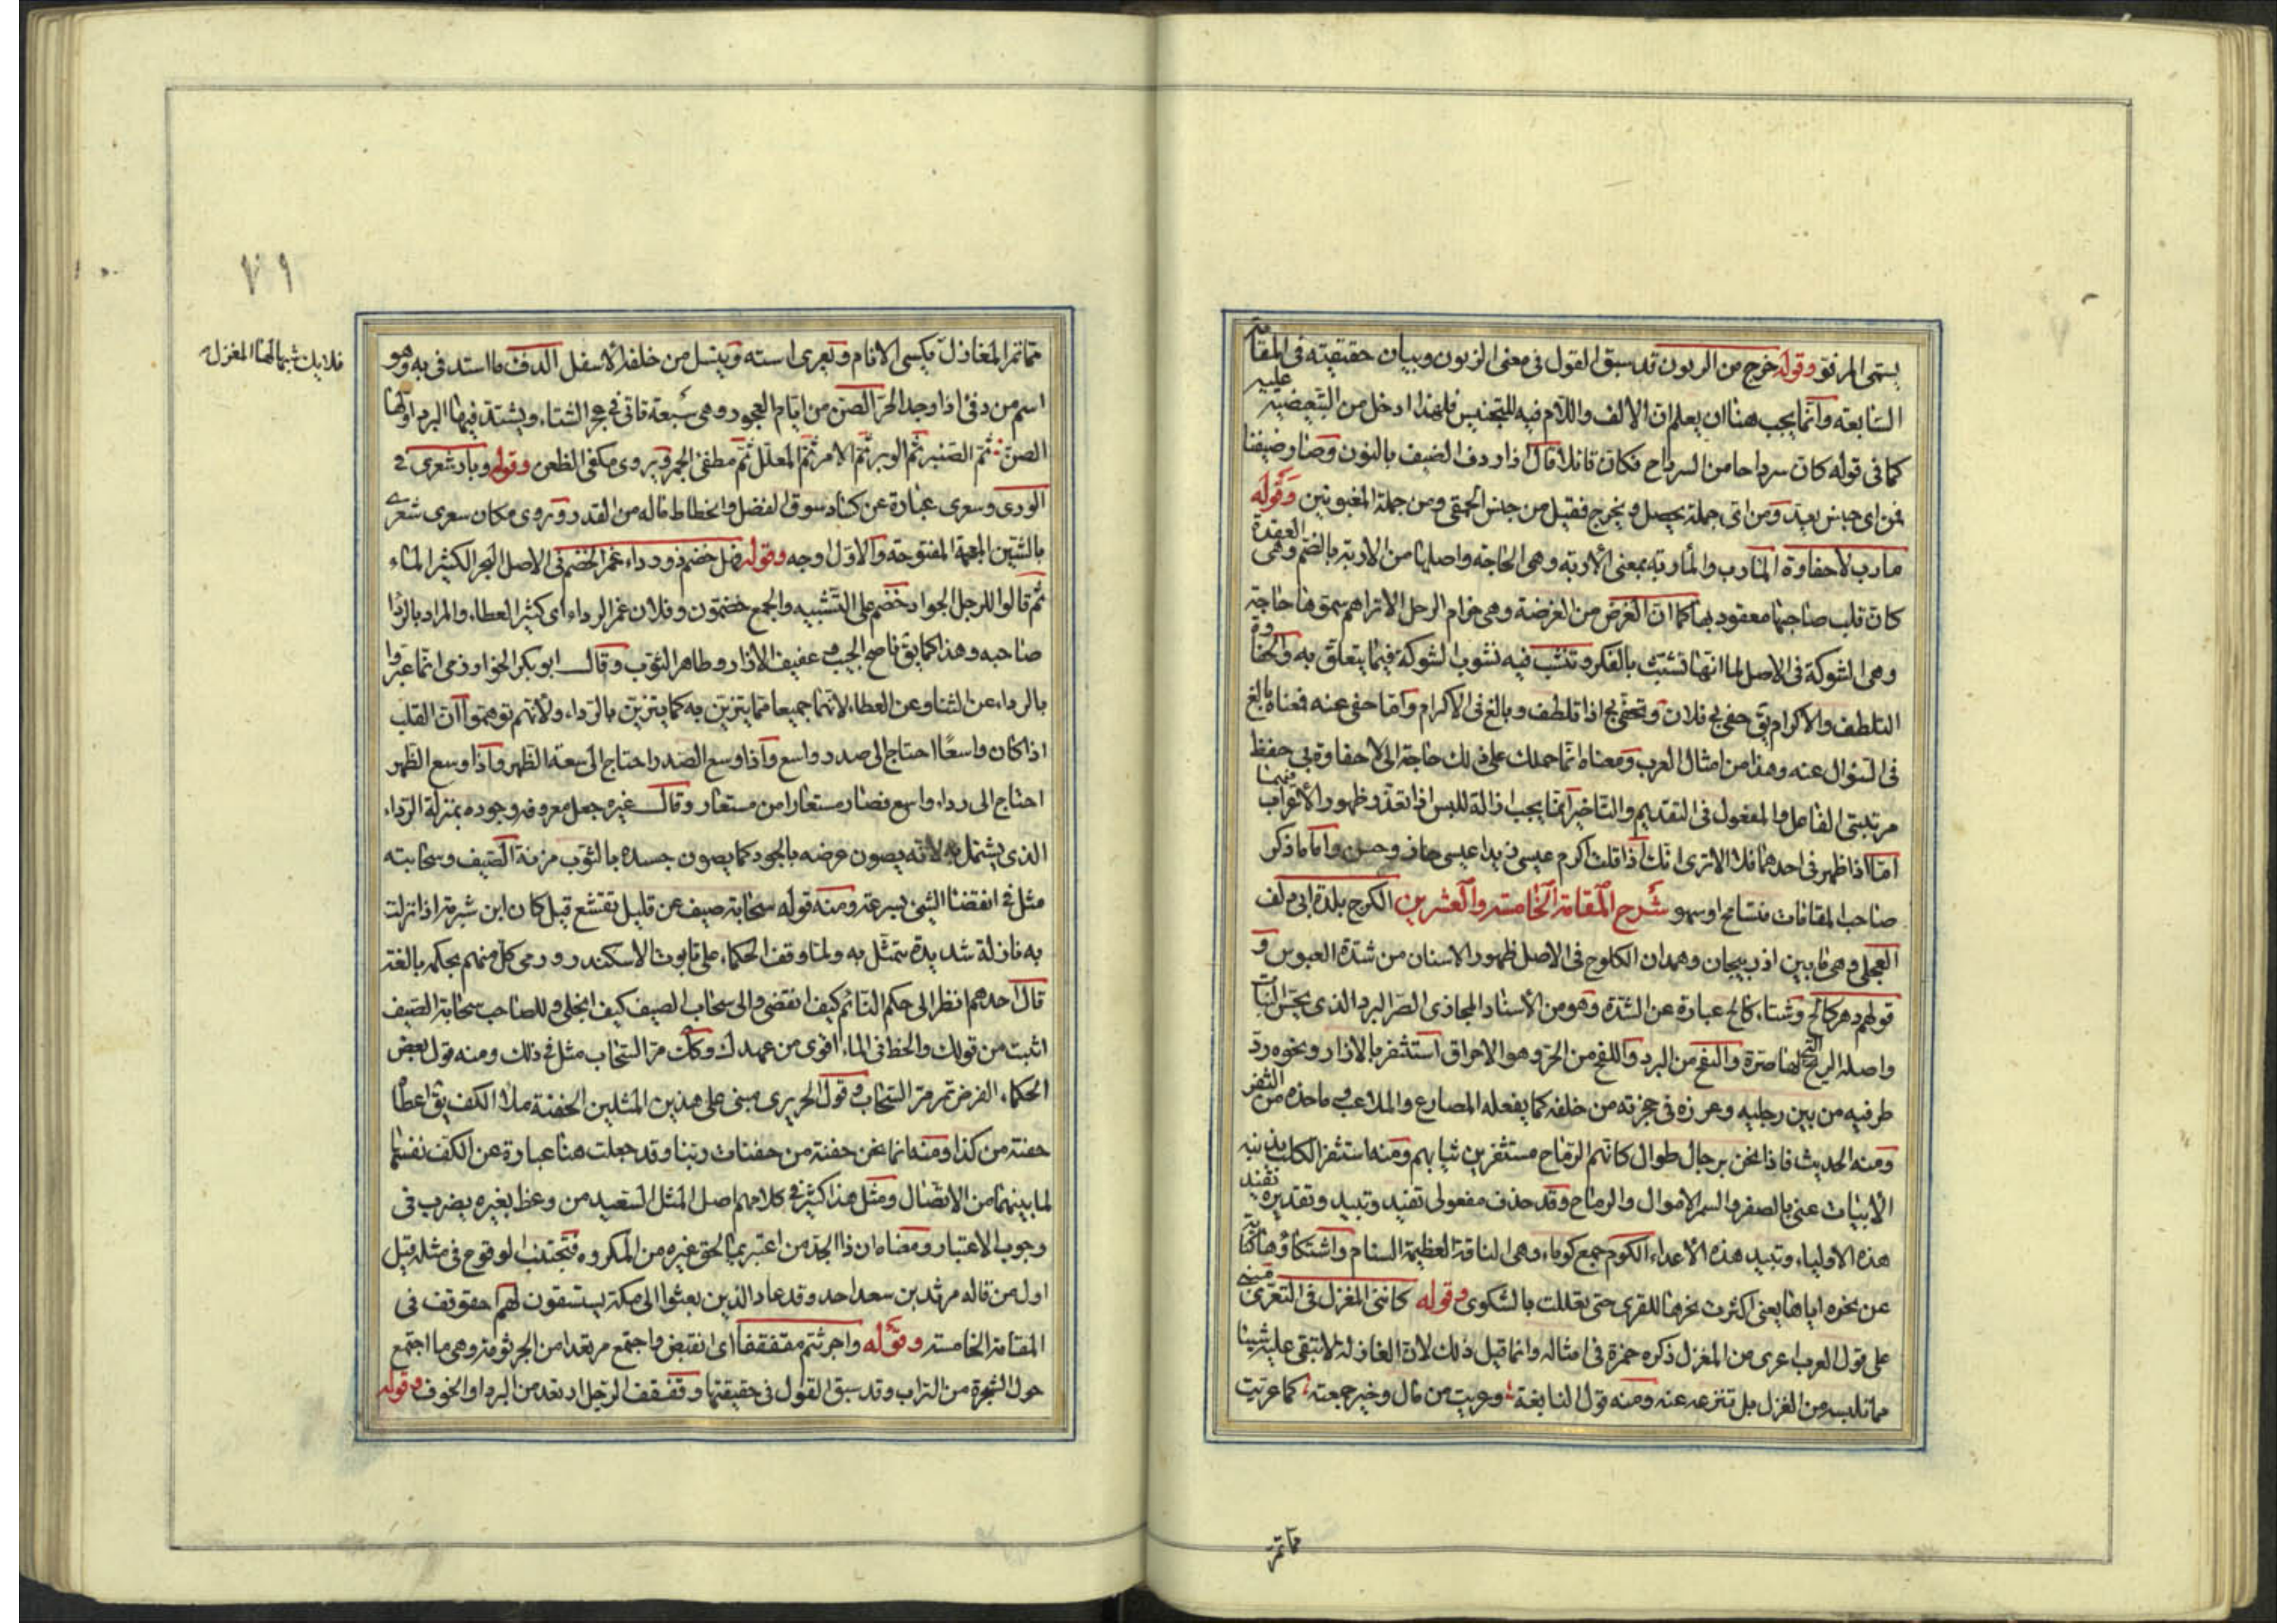 يسمى المرفق وقوله خرج من الربون قد سبق القول فى معنى الزبون وبيان حقيقته فى المقامة
السابعه وانما يجب هنا ان يعلم ان الالف واللام فيه للتجنيس فلهذا ادخل من التبعيضية عليه
كما فى قوله كان سرداحا من السرداح فكان قائلا قال اذا ردف الضيف بالنون وصار ضيفنا
فمن اى جنس يعد ومن اى جملة يحصل ويخرج فقيل من جنس الحمقى ومن جملة المغبونين وقوله
مارب لا حفاوة المارب والماربه بمعنى الاربه وهى الحاجة واصلها من الاربة بالضم وهى العقدة
كان قلب صاحبها معقود بها كما ان الغرض من الغرضة وهى حزام الرحل الا تراهم سموها حاجة
وهى الشوكة فى الاصل لما انها تشبث بالفكر وتنشب فيه نشوب الشوكة فيما يتعلق به والحفاوة
التلطف والاكرام يق حفى بى فلان وتحفى بى اذا تلطف وبالغ فى الاكرام واما حفى عنه فمعناه بالغ
فى السؤال عنه وهذا من امثال العرب ومعناه انما حملك على ذلك حاجة الى لا حفاوة بى حفظ
مرتبتى الفاعل والمفعول فى التقديم والتاخير انما يجب ازالة للبس اذا تعذر ظهور الاعراب فيهما
اما اذا ظهر فى احدهما فلا الا ترى انك اذا قلت اكرم عيسى زيدا عيسى جاز وحسن واما ما ذكر
صاحب المقامات فتسامح او سهو شرح المقامة الخامسة والعشرين الكرج بلدة ابى دلف
العجلى وهى ما بين اذربيجان وهمدان الكلوح فى الاصل ظهور الاسنان من شدة العبوس و
قولهم دهر كالح وشتاء كالح عبارة عن الشدة وهو من الاسناد المجازى الصر البرد الذى يحس النبات
واصله الريح لها صرة والنفح من البرد واللفح من الحر وهو الاحراق استثفر بالازار ونحوه رد
طرفيه من بين رجليه وغرزه فى حجزته من خلفه كما يفعله المصارع والملاعب وماخذه من الثفر
ومنه الحديث فاذا نحن برجال طوال كانهم الرماح مستثفرين ثيابهم ومنه استثفر الكلب بذنبه
الابيات عنى بالصفر والسمر الاموال والرماح وقد حذف مفعولى تفيد وتبيد وتقديره تفيد
هذه الاولياء وتبيد هذه الاعداء الكوم جمع كوماء وهى الناقة العظيمة السنام واشتكاؤها كناية
عن نحره اياها يعنى اكثرت نحرها للقرى حتى تعللت بالشكوى وقوله كاننى المغزل فى التعرى مبنى
على قول العرب اعرى من المغزل ذكره حمزة فى امثاله وانما قيل ذلك لان الغازلة لا تبقى عليه شيئا
مما تلبسه من الغزل بل تنزعه عنه ومنه قول النابغة وعريت من مال وخير جمعته كما عريت
مما تمر
مما تمر المغازل يكسى الانام وتعرى استه وينسل من خلفه الاسفل الدفء ما استدفى به وهو
اسم من دفئ اذا وجد الحر الصن من ايام العجوز وهى سبعة تاتى فى عجز الشتاء ويشتد فيها البرد اولها
الصن ثم الصنبر ثم الوبر ثم الامر ثم المعلل ثم مطفئ الجمر ويروى مكفى الظعن وقوله وبار شعرى فى
الورى وسعرى عبارة عن كساد سوق الفضل وانحطاط ماله من القدر وروى مكان سعرى شعرى
بالشين المعجمة المفتوحة والاول اوجه وقوله فهل خضم ذو رداء غمر الخضم فى الاصل البحر الكثير الماء
ثم قالوا للرجل الجواد خضم على التشبيه والجمع خضمون وفلان غمر الرداء اى كثير العطاء والمراد بالردا
صاحبه وهذا كما يق ناصح الجيب وعفيف الازار وطاهر الثوب وقال ابو بكر الخوارزمى انما عبروا
بالرداء عن الثنا وعن العطاء لانهما جميعا مما يتزين به كما يتزين بالرداء ولانهم توهموا ان القلب
اذا كان واسعا احتاج الى صدر واسع واذا وسع الصدر احتاج الى سعة الظهر واذا وسع الظهر
احتاج الى رداء واسع فصار مستعارا من مستعار وقال غيره جعل معروفه وجوده بمنزلة الرداء
الذى يشتمل به لانه يصون عرضه بالجود كما يصون جسده بالثوب مزنة الصيف وسحابته
مثل فى انقضا الشئ بسرعة ومنه قوله سحابة صيف عن قليل تقشع قيل كان ابن شبرمة اذا نزلت
به نازلة شديدة تمثل به ولما وقف الحكماء على تابوت الاسكندر ورمى كل منهم بحكم بالغة
قال احدهم انظر الى حكم النائم كيف انقضى والى سحاب الصيف كيف انجلى وللصاحب سحابة الصيف
اثبت من قولك والخط فى الماء اقوى من عهدك وكك مر السحاب مثل فى ذلك ومنه قول بعض
الحكماء الفرص تمر مر السحاب وقول الحريرى مبنى على هذين المثلين الحفنة ملا الكف يق اعطاه
حفنة من كذا ومنه انما نحن حفنة من حفنات ربنا وقد جعلت هنا عبارة عن الكف نفسها
لما بينهما من الاتصال ومثل هذا كثير فى كلامهم اصل المثل السعيد من وعظ بغيره يضرب فى
وجوب الاعتبار ومعناه ان ذا الجد من اعتبر بما لحق غيره من المكروه فتجتنب الوقوع فى مثله قيل
اول من قاله مرثد بن سعد احد وفد عاد الذين بعثوا الى مكة يستسقون لهم حقوقف فى
المقامة الخامسة وقوله واجرثم مقفقفا اى انقبض واجتمع مرتعدا من الجرثومة وهى ما اجتمع
حول الشجرة من التراب وقد سبق القول فى حقيقتها وقفقف الرجل ارتعد من البرد او الخوف وقوله
٧١